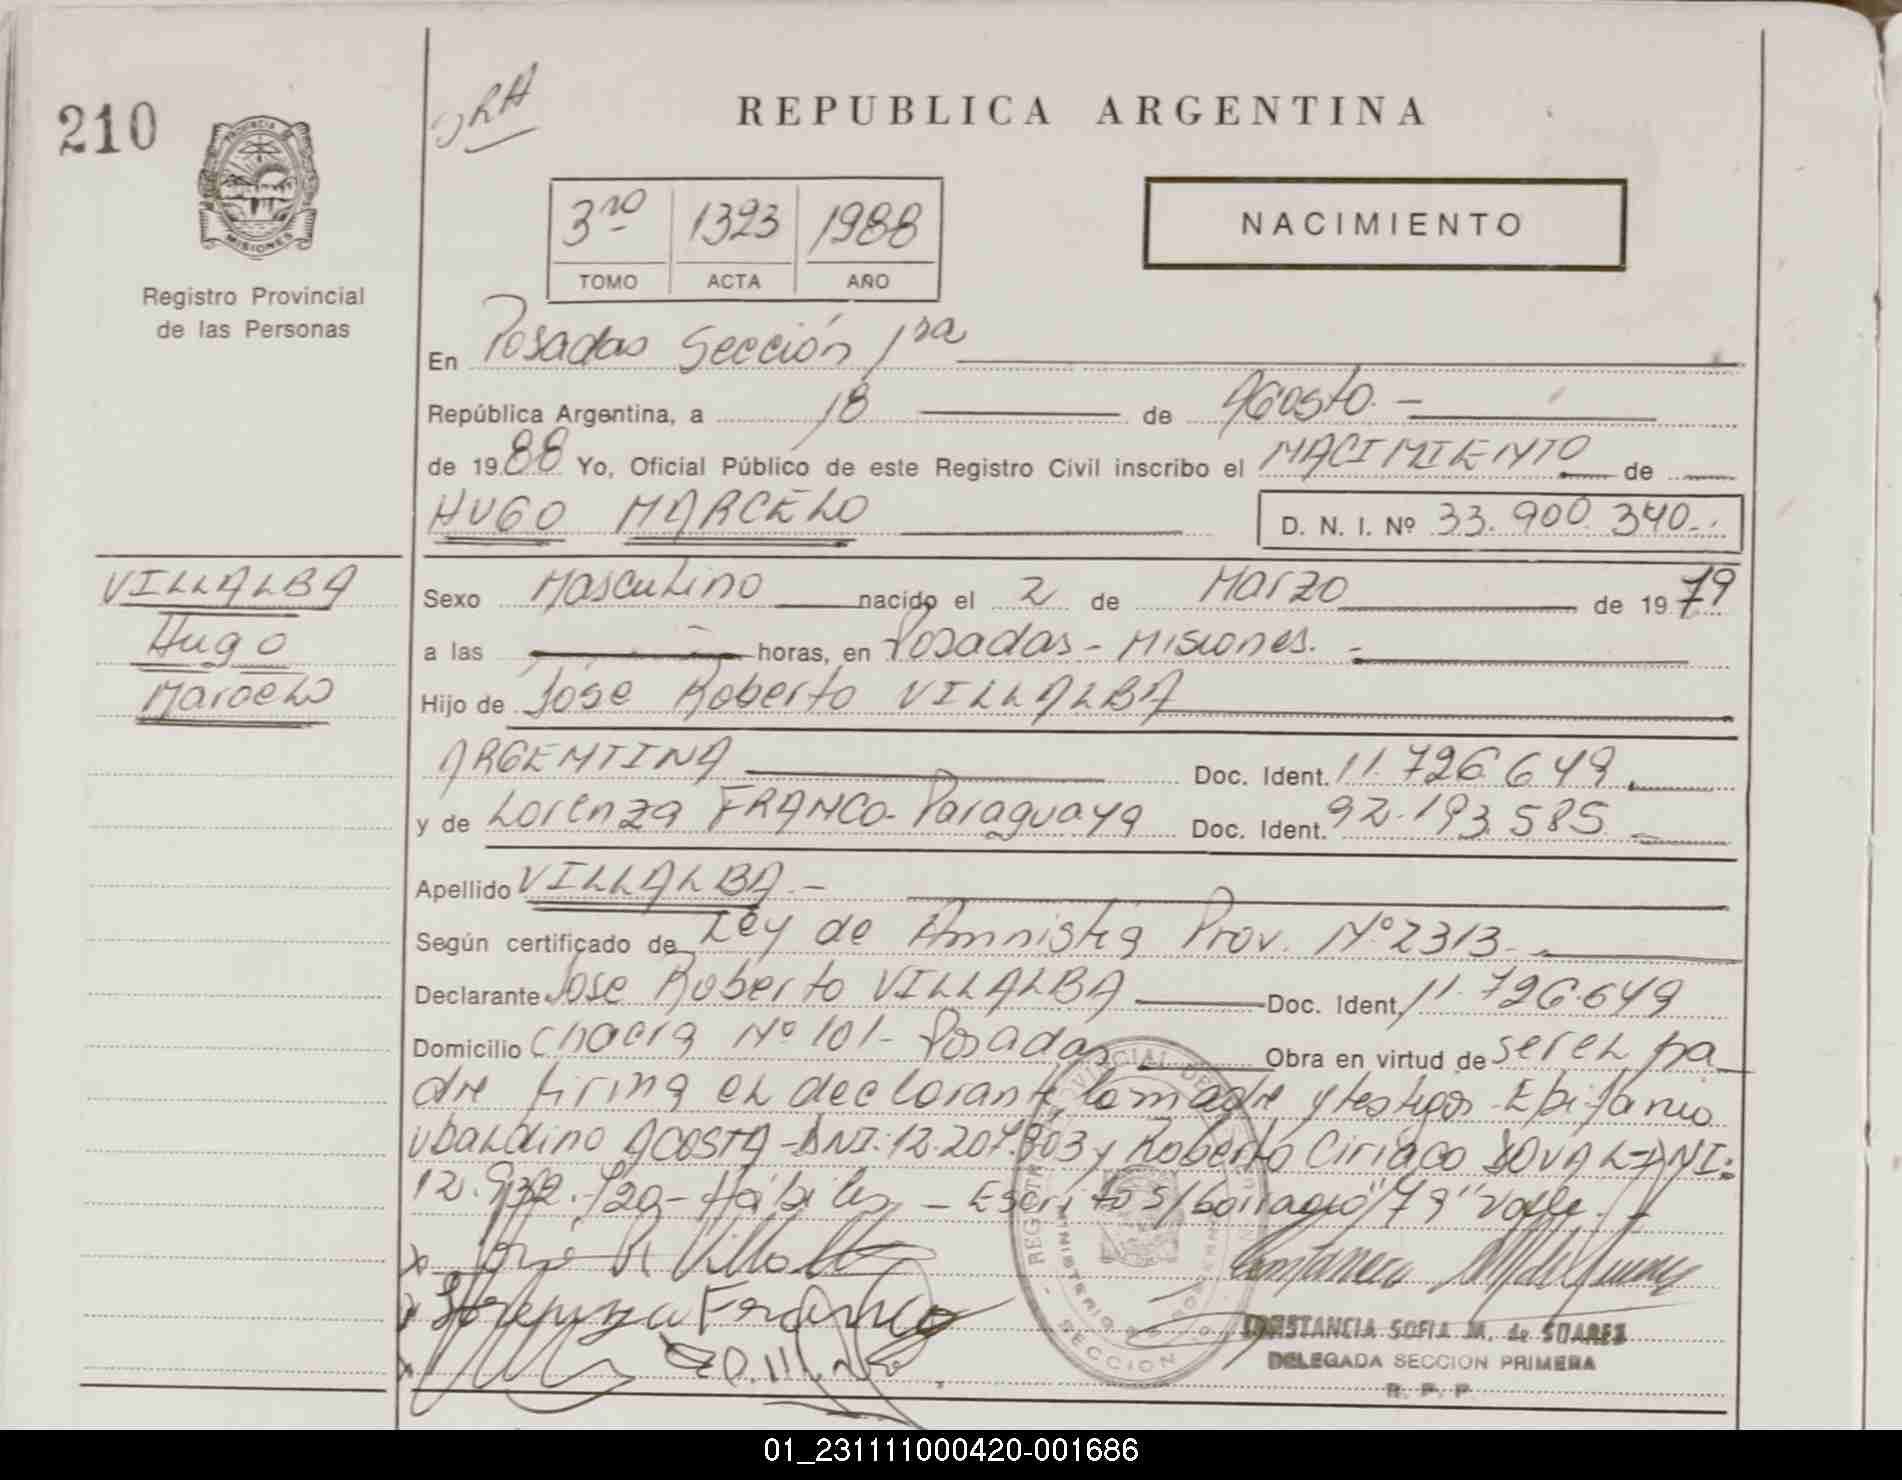 210
PROVINCIA DE
MISIONES
Registro Provincial
de las Personas
REPUBLICA ARGENTINA
3ro 1393 1988
TOMO ACTA AÑO
NACIMIENTO
En Posadas Sección 1ra
República Argentina, a 18 de Agosto.-
de 1988 Yo, Oficial Público de este Registro Civil inscribo el NACIMIENTO de
HUGO MARCELO D. N. I. Nº 33.900.340..
VILLALBA
Hugo
Marcelo
Sexo Masculino nacido el 2 de Marzo de 1979
a las horas, en Posadas - Misiones. -
Hijo de José Roberto VILLALBA
ARGENTINA Doc. Ident. 11.726.649
y de Lorenza FRANCO - Paraguaya Doc. Ident. 92.193.585
Apellido VILLALBA -
Según certificado de Ley de Amnistia Prov. Nº 2313-
Declarante José Roberto VILLALBA Doc. Ident. 11.726.649
Domicilio Chacra Nº 101 - Posadas Obra en virtud de ser el pa
dre firma el declarante, la madre y testigos - Epifanio
Ubaldino ACOSTA - DNI: 12.207.803 y Roberto Ciriaco DNI:
12.932. - Hábiles - Escrito s/borrado "79" Vale. -
José R Villalba
Lorenza Franco
CONSTANCIA SOFIA M. de SUAREZ
DELEGADA SECCION PRIMERA
R. P. P.
SECCION
01_231111000420-001686